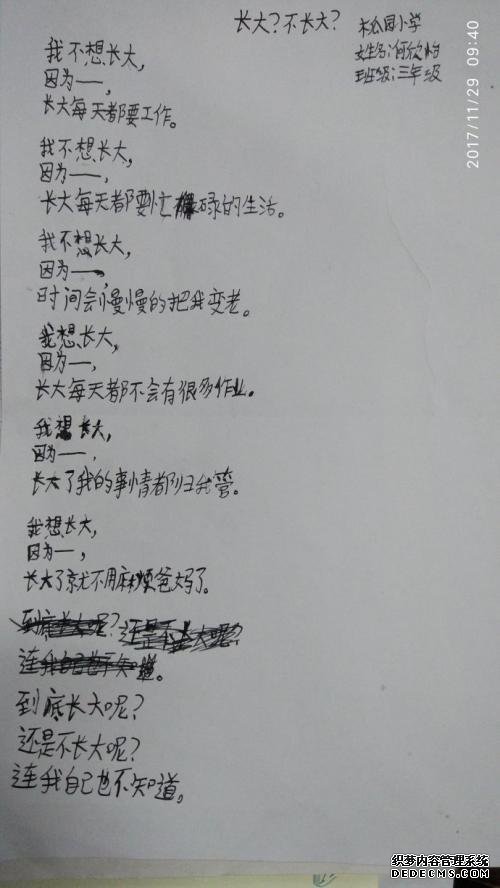 长大?不长大?
木公园小学
姓名:何欣怡
班级:三年级
2017/11/29 09:40
我不想长大,
因为——,
长大每天都要工作。
我不想长大,
因为——,
长大每天都要忙碌的生活。
我不想长大,
因为——,
时间会慢慢的把我变老。
我想长大,
因为——,
长大每天都不会有很多作业。
我想长大,
因为——,
长大了我的事情都归我管。
我想长大,
因为——,
长大了就不用麻烦爸妈了。
到底长大呢?还是不长大呢?
连我自己也不知道。
到底长大呢?
还是不长大呢?
连我自己也不知道。
织梦内容管理系统
DEDECMS.COM